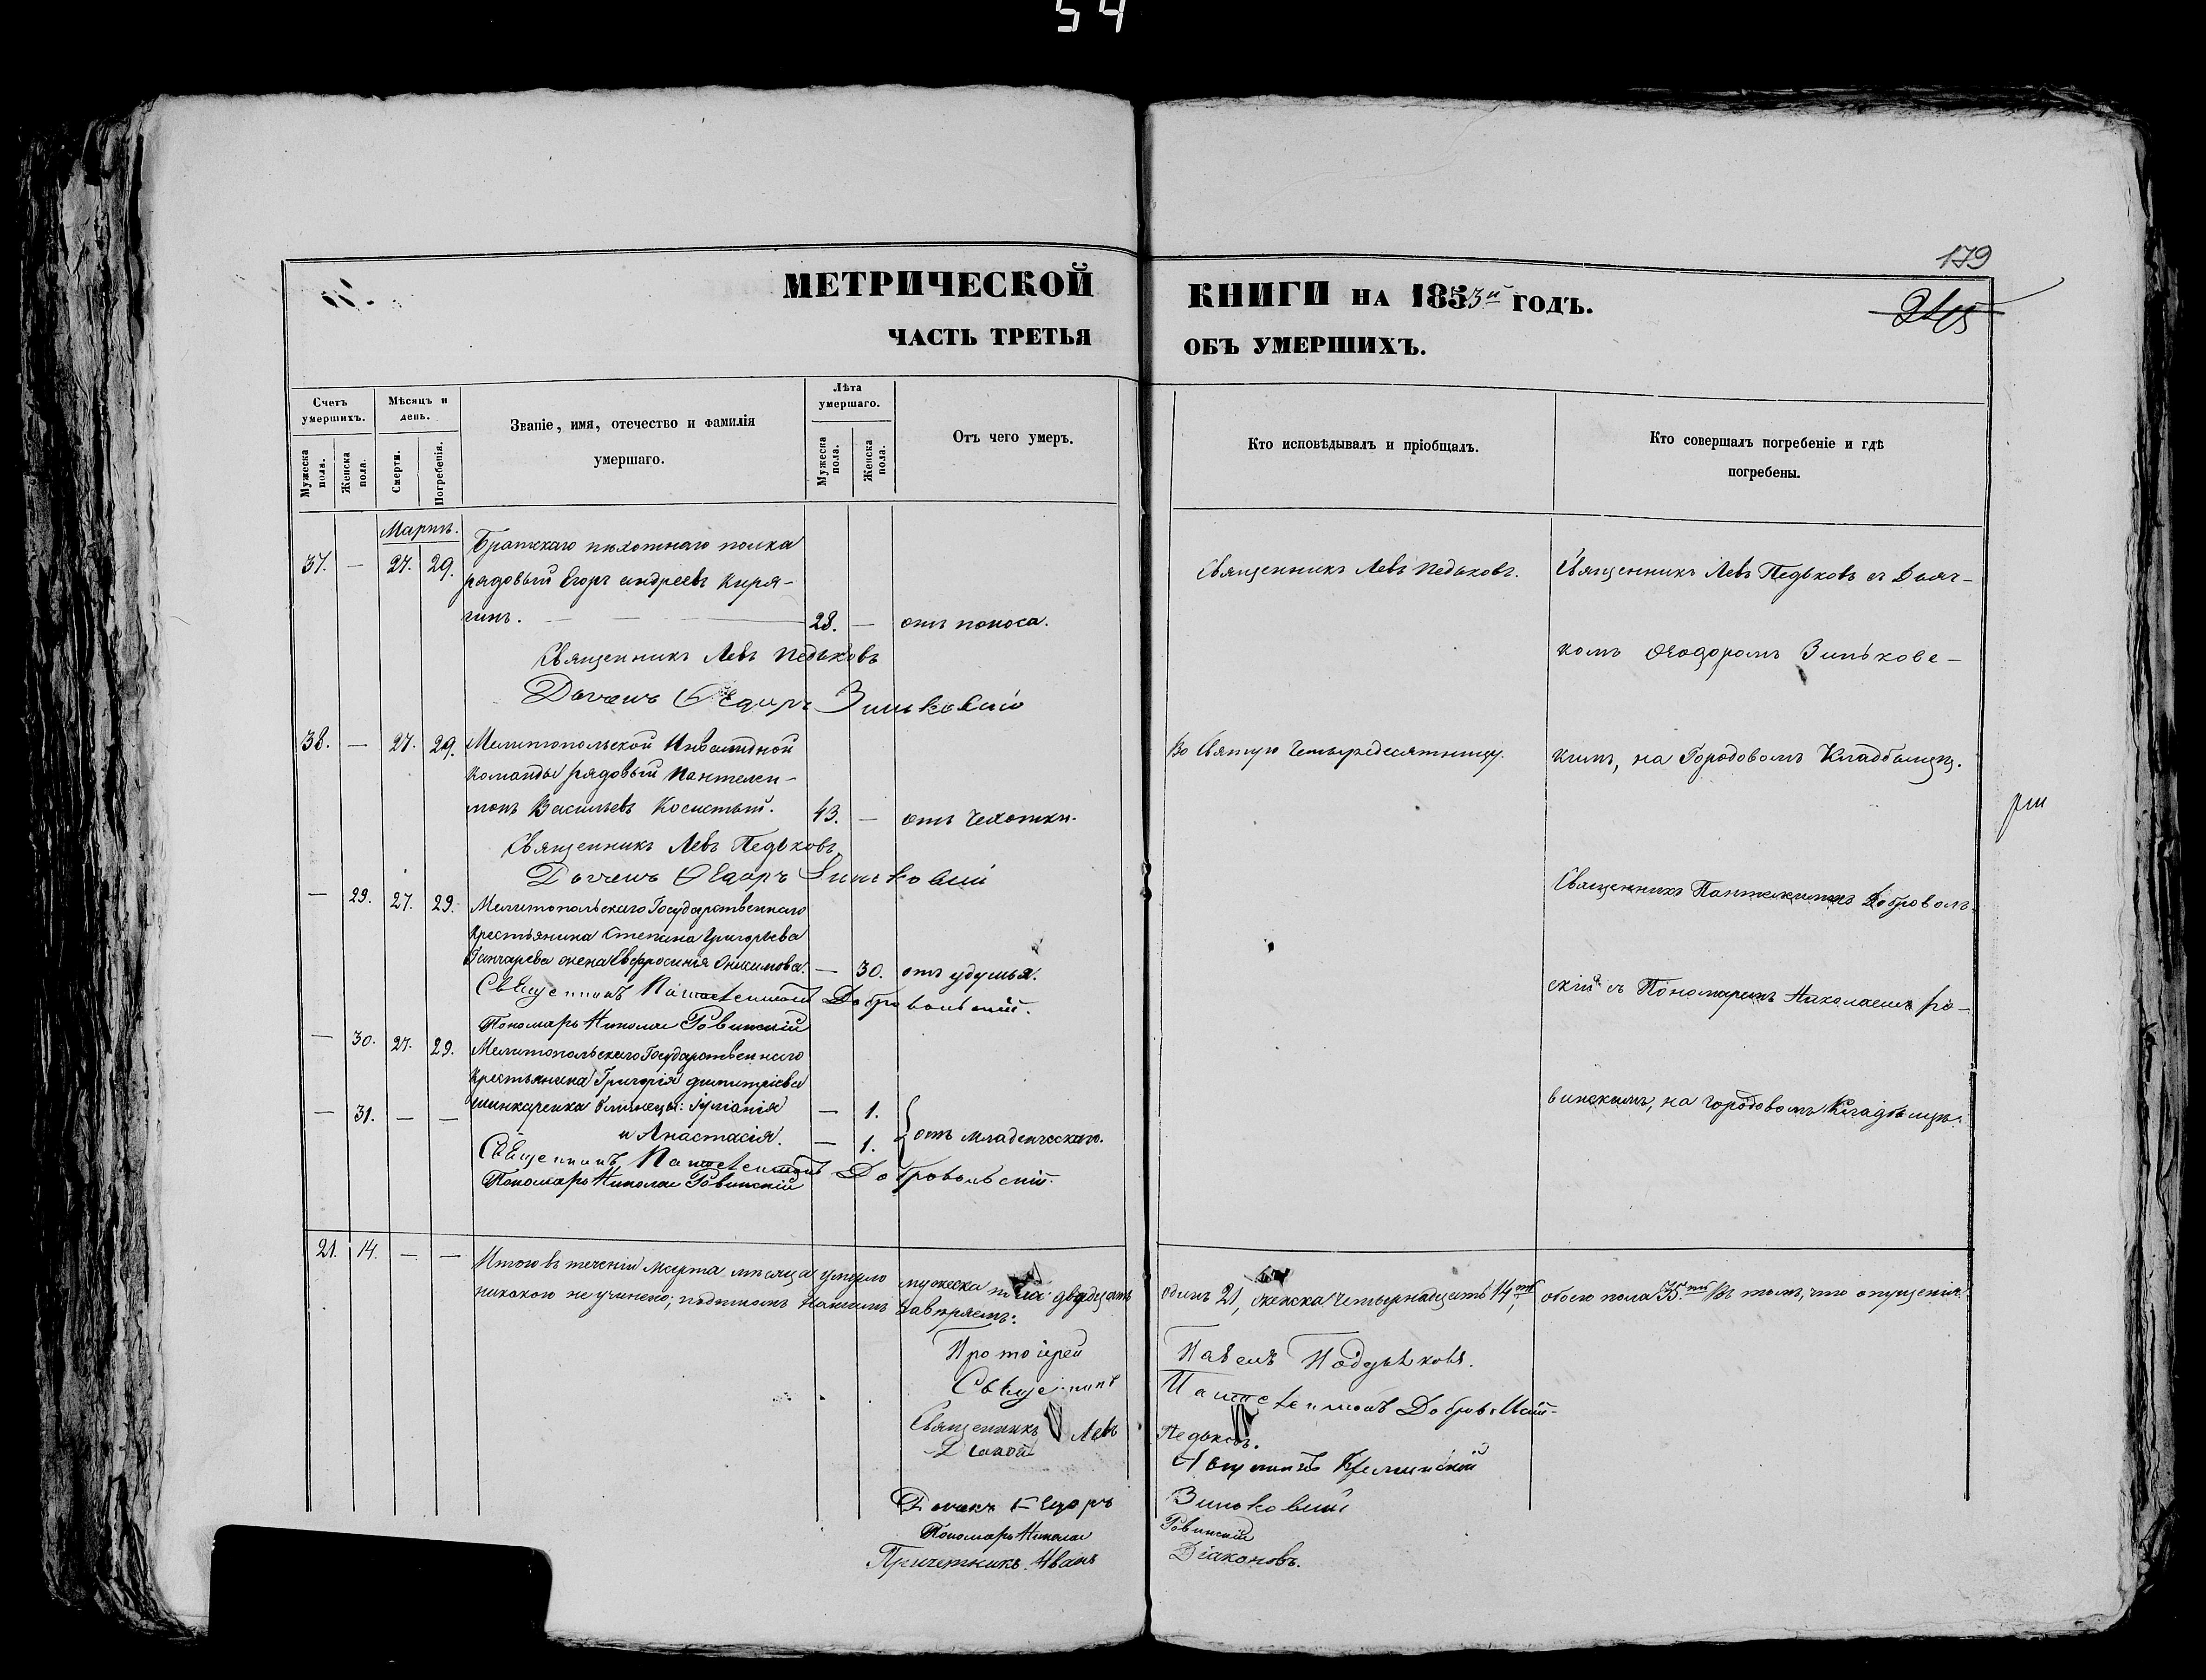 54
179
МЕТРИЧЕСКОЙ КНИГИ НА 1853й ГОДЪ.
2405
ЧАСТЬ ТРЕТЬЯ ОБЪ УМЕРШИХЪ.
Счетъ умершихъ.
Мужеска пола.
Женска пола.
Мѣсяцъ и день.
Смерти.
Погребенія.
Званіе, имя, отечество и фамилія умершаго.
Лѣта умершаго.
Мужеска пола.
Женска пола.
Отъ чего умеръ.
Кто исповѣдывалъ и пріобщалъ.
Кто совершалъ погребеніе и гдѣ погребены.
Мартъ.
37. — 27. 29. Братскаго пѣхотнаго полка
рядовый Егоръ Андреевъ Киря-
гинъ. 28. — отъ поноса.
Священникъ Левъ Педьковъ.
Священникъ Левъ Педьковъ съ Дьяч-
комъ Ѳеодоромъ Зиньковс-
кимъ, на Городовомъ Кладбищѣ.
Священникъ Левъ Педьковъ
Дьячекъ Ѳедоръ Зиньковскій
38. — 27. 29. Мелитопольской Инвалидной
команды рядовый Пантелеи-
монъ Васильевъ Косистый. 43. — отъ чехотки.
Во Святую Четыредесятницу.
Священникъ Левъ Педьковъ
Дьячекъ Ѳедоръ Зиньковскій
— 29. 27. 29. Мелитопольскаго Государственнаго
крестьянина Степана Григорьева
Ганчарева жена Евфросинія Онисимова. — 30. отъ удушья.
Священникъ Пантелеимонъ Доброволь-
скій съ Пономаремъ Николаемъ Ро-
винскимъ, на городовомъ Кладбищѣ.
Священникъ Пантелеимонъ Добровольскій.
Пономарь Николай Ровинскій
— 30. 27. 29. Мелитопольскаго Государственнаго
крестьянина Григорія Димитріева
— 31. — — Шинкаренка близнецы: Іуліанія — 1.
и Анастасія. — 1. отъ младенческаго.
Священникъ Пантелеимонъ Добровольскій.
Пономарь Николай Ровинскій
21. 14. — — Итого въ теченіи Марта мѣсяца умерло мужеска пола двадцать одинъ 21, женска четырнадцать 14, обоего пола 35. Въ томъ, что опущенія
никакого не учинено; подписомъ нашимъ завѣряемъ:
Протоіерей Павелъ
Священникъ Пантелеимонъ Добровольскій
Священникъ Левъ Педьковъ.
Дьячекъ Ѳедоръ Зиньковскій
Пономарь Николай Ровинскій
Причетникъ Иванъ Діаконовъ.